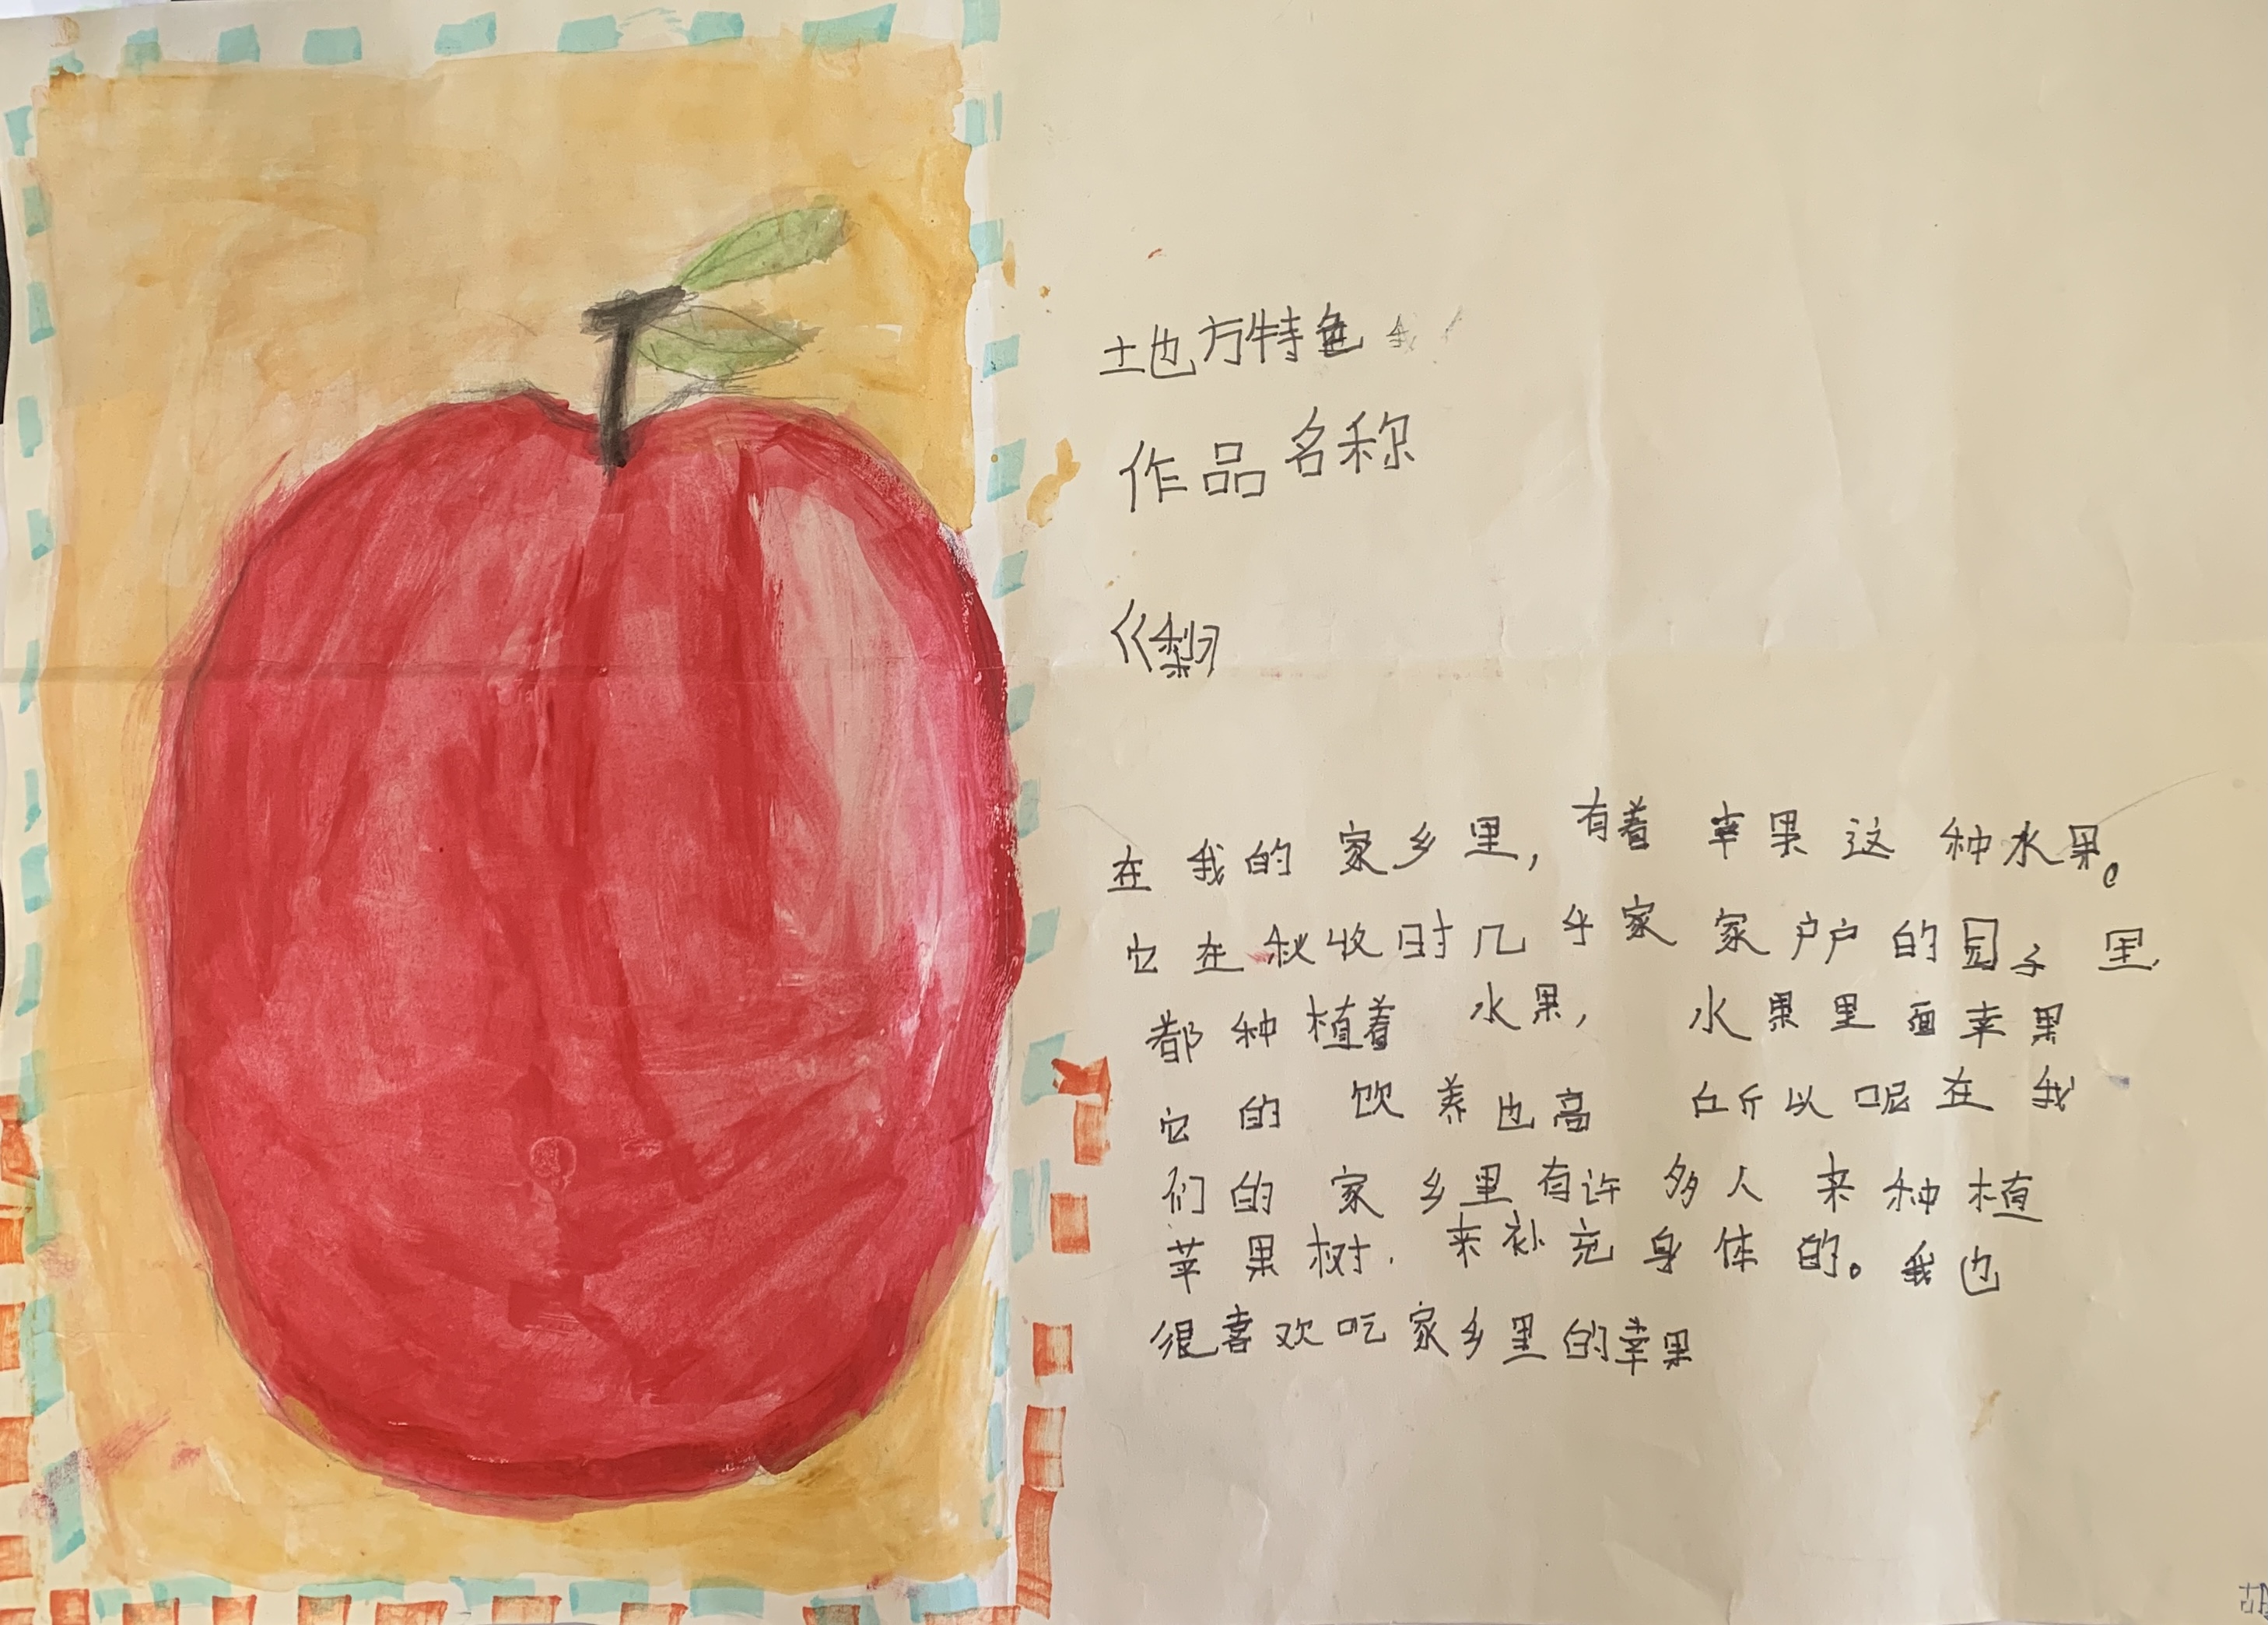 地方特色
作品名称
《梨》
在我的家乡里,有着苹果这种水果。
它在秋收时几乎家家户户的园子里
都种植着水果, 水果里面苹果
它的饮养也高 所以呢在我
们的家乡里有许多人来种植
苹果树.来补充身体的。我也
很喜欢吃家乡里的苹果